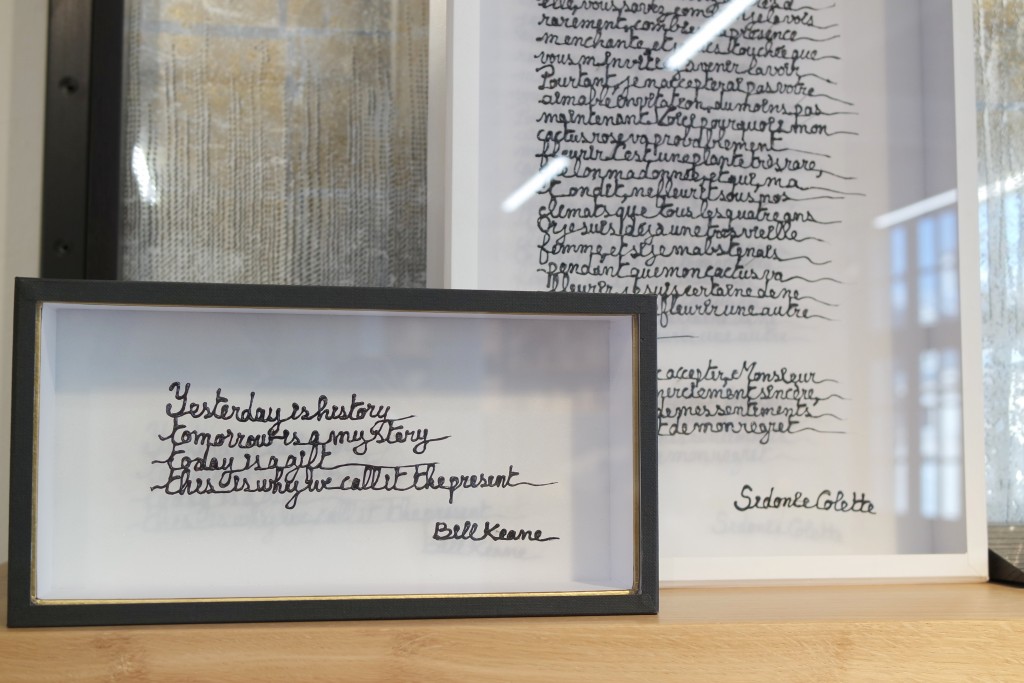 Yesterday is history
tomorrow is a mystery
today is a gift
this is why we call it the present
Bill Keane
elle, vous savez
rarement, présence
m'enchante, et touchée que
vous m'invite à venir la voir,
Pourtant, je n'accepterai pas votre
aimable invitation, du moins pas
maintenant. Voici pourquoi : mon
cactus rose va probablement
fleurir. C'est une plante très rare,
que l'on m'a donnée, et qui, m'a
t'on dit, ne fleurit sous nos
climats que tous les quatre ans
Or je suis déjà une très vieille
femme, et si je m'absentais
pendant que mon cactus va
fleurir, je suis certaine de ne
refleurir une autre
accepter, Monsieur
sincère,
de mes sentiments
et de mon regret
Sidonie Colette